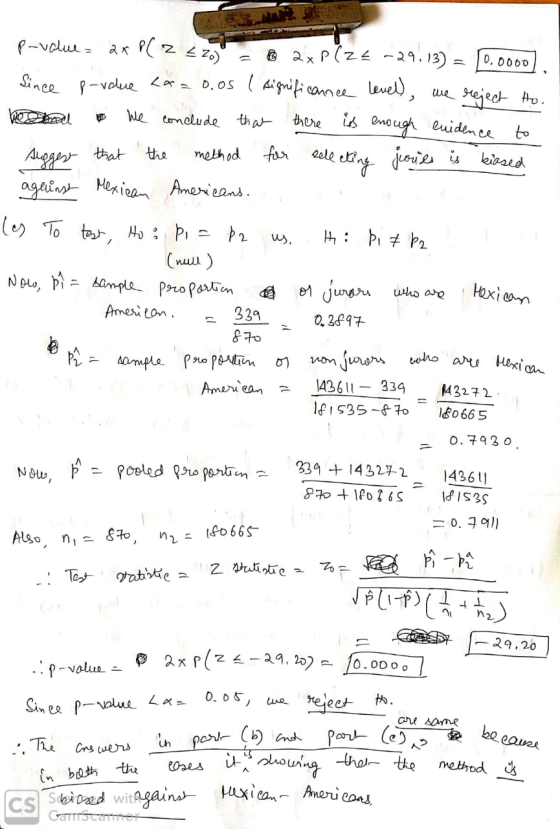 p-value = 2x P( Z ≤ Z₀) = 2x P( Z ≤ -29.13) = 0.0000.
Since p-value < α = 0.05 ( significance level), we reject H₀.
We conclude that there is enough evidence to
suggest that the method for selecting juries is biased
against Mexican Americans.
(c) To test, H₀ : p₁ = p₂ vs. H₁ : p₁ ≠ p₂
(null)
Now, p̂₁ = sample proportion of jurors who are Mexican
American. = 339/870 = 0.3897
p̂₂ = sample proportion of nonjurors who are Mexican
American = (143611 - 339)/(181535 - 870) = 143272/180665
= 0.7930.
Now, p̂ = pooled proportion = (339 + 143272)/(870 + 180665) = 143611/181535
= 0.7911
Also, n₁ = 870, n₂ = 180665
∴ Test statistic = Z statistic = Z₀ = (p̂₁ - p̂₂)/√(p̂(1-p̂)(1/n₁ + 1/n₂))
= -29.20
∴ p-value = 2x P( Z ≤ -29.20) = 0.0000
Since p-value < α = 0.05, we reject H₀.
∴ The answers in part (b) and part (c) are same, because
in both the cases it is showing that the method is
biased against Mexican-Americans
CS Scanned with
CamScanner